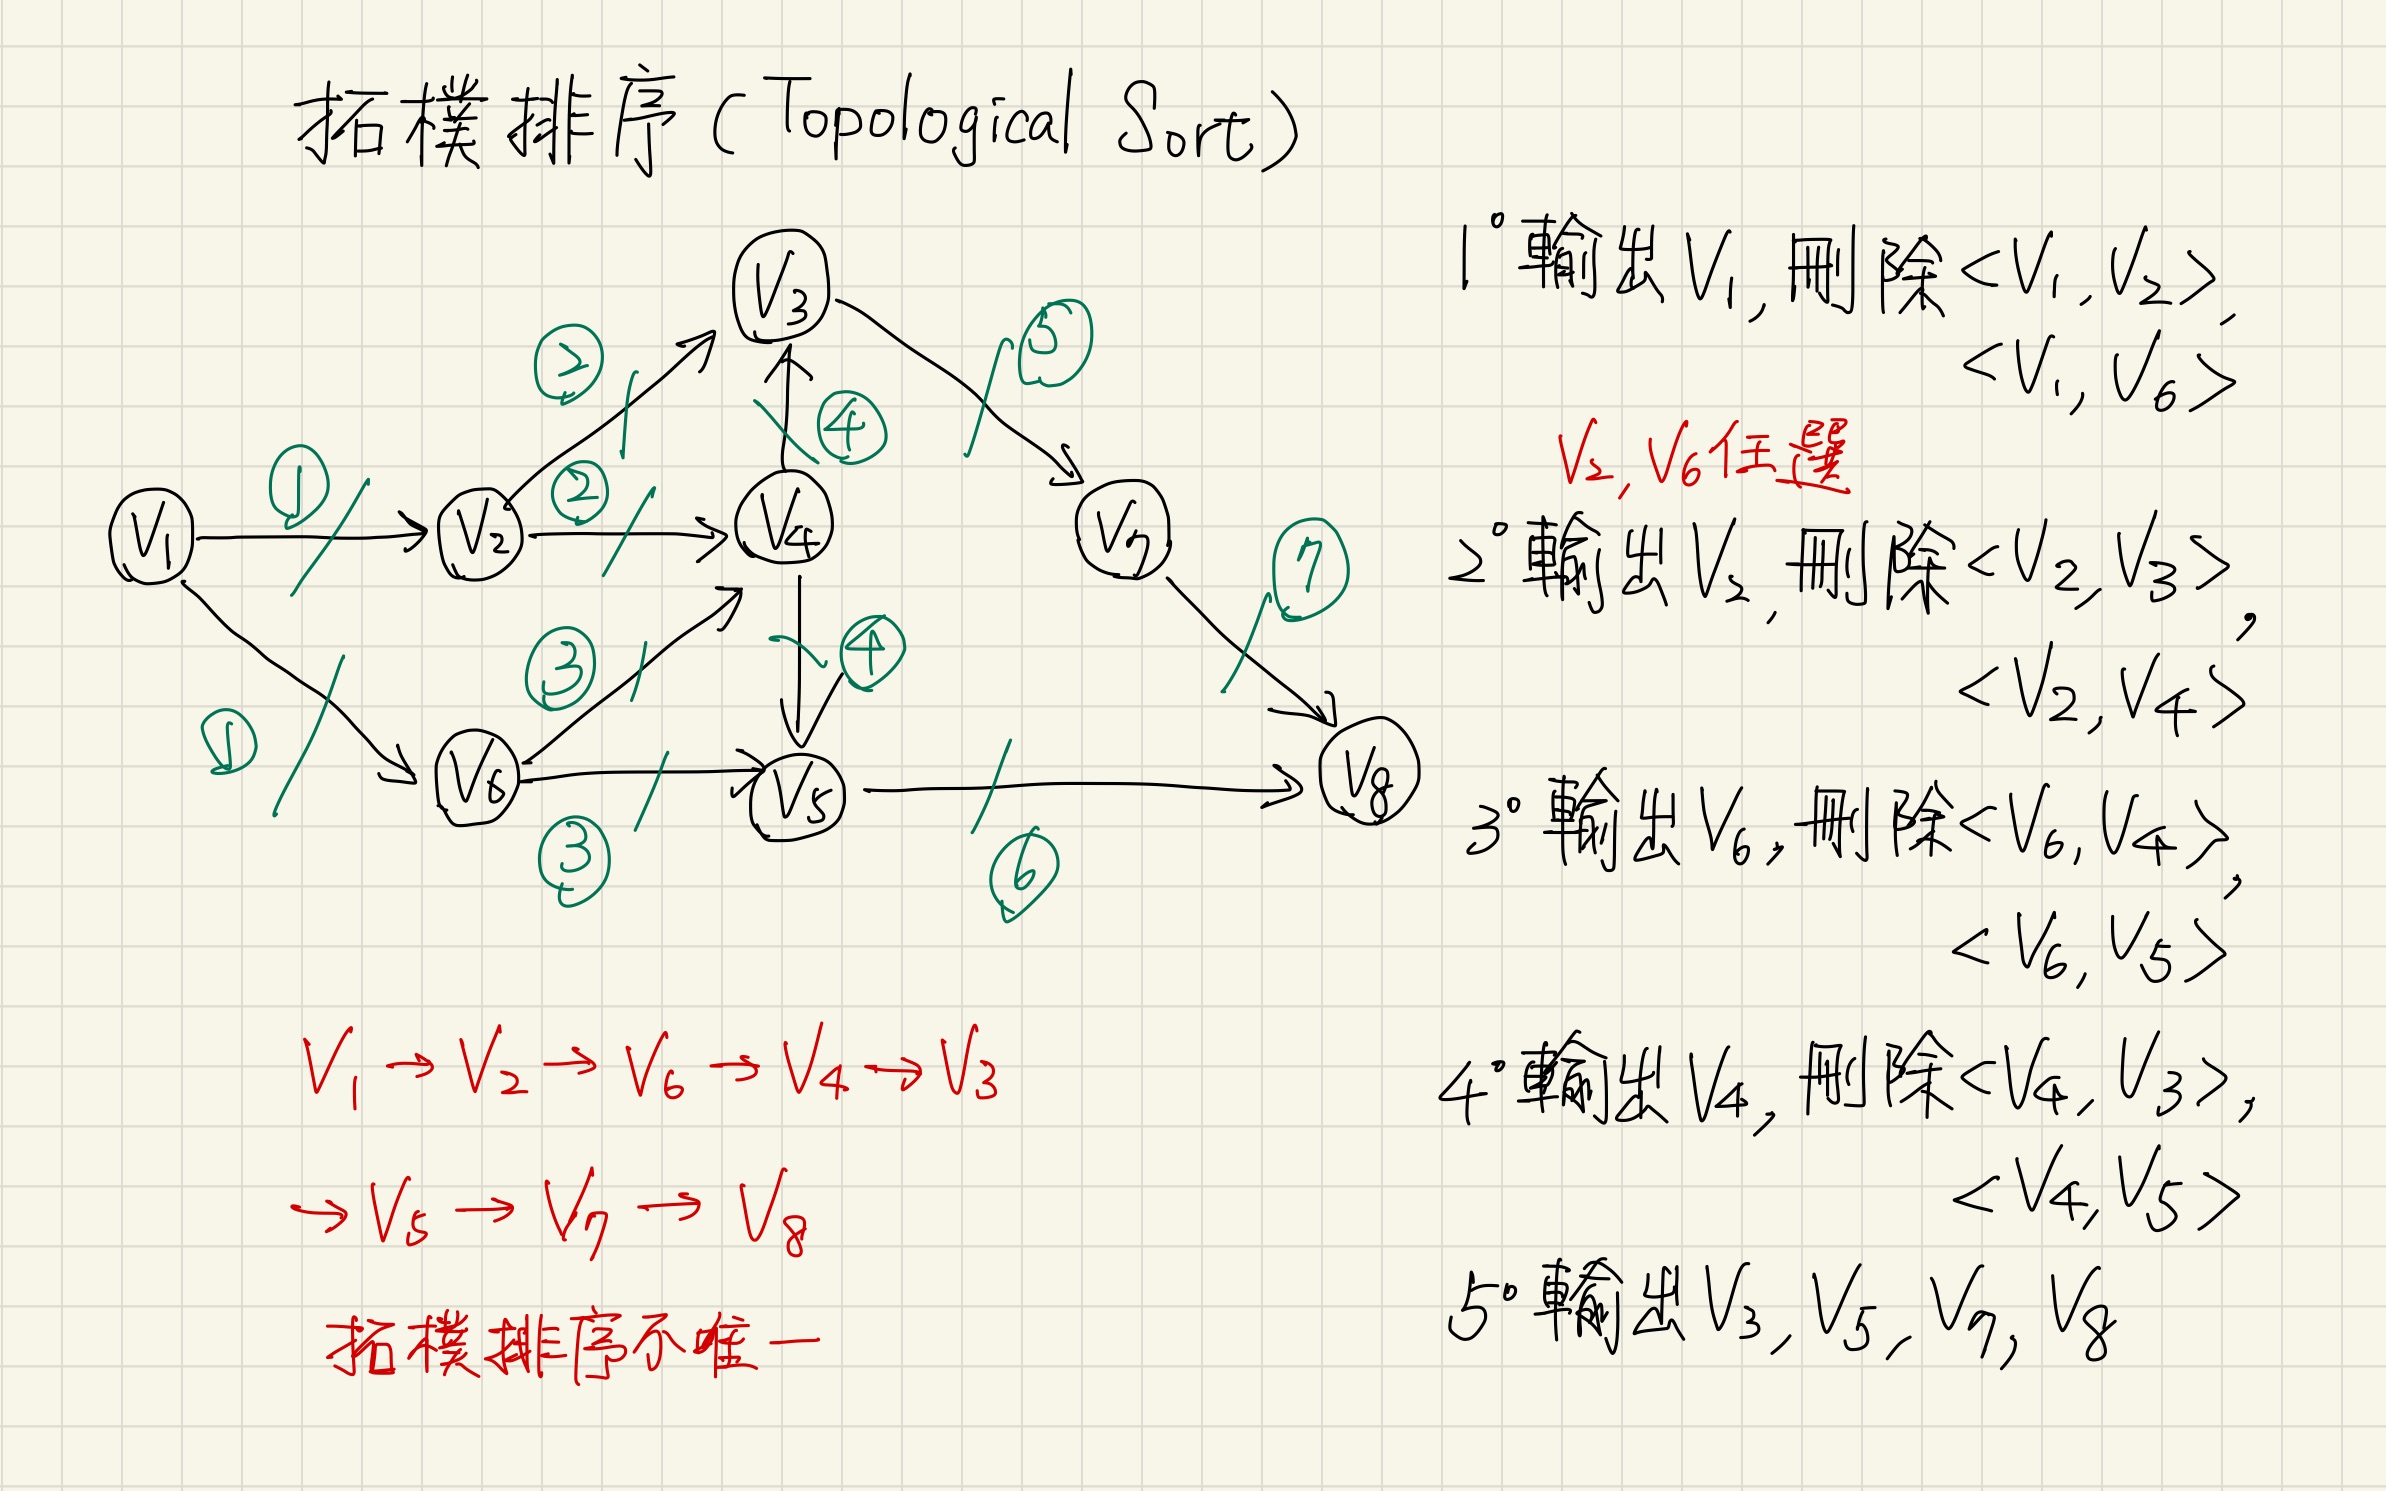 拓樸排序(Topological Sort)
V3
②
⑤
④
①
②
V1
V2
V4
V7
⑦
③
④
①
V6
V5
V8
③
⑥
V1→V2→V6→V4→V3
→V5→V7→V8
拓樸排序不唯一
1° 輸出V1,刪除<V1,V2>,
<V1,V6>
V2,V6任選
2° 輸出V2,刪除<V2,V3>,
<V2,V4>
3° 輸出V6,刪除<V6,V4>,
<V6,V5>
4° 輸出V4,刪除<V4,V3>,
<V4,V5>
5° 輸出V3,V5,V7,V8